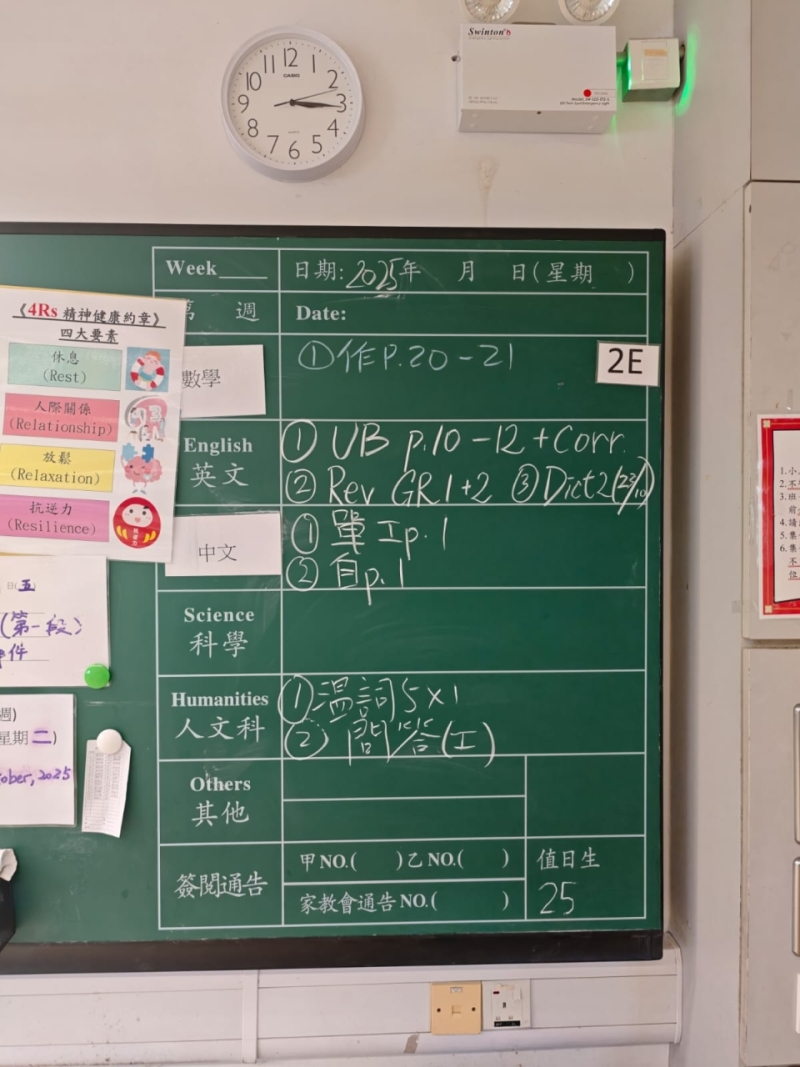 12
1
2
3
4
5
6
7
8
9
10
11
CASIO
QUARTZ
Swinton
Week
日期: 2025年 月 日(星期 )
週
Date:
《4Rs 精神健康約章》
四大要素
休息
(Rest)
人際關係
(Relationship)
放鬆
(Relaxation)
抗逆力
(Resilience)
數學
① 作 P.20-21
2E
English
英文
① UB p.10-12 + Corr.
② Rev GR1+2 ③ Dict 2 (23/10)
中文
① 單工p.1
② 自p.1
Science
科學
Humanities
人文科
① 溫詞5x1
② 問答(工)
Others
其他
簽閱通告
甲 NO.( )乙 NO.( )
家教會通告 NO.( )
值日生
25
日(五)
(第一段)
件
週)
星期二)
ober, 2025
1.小
2.不
3.班
前
4.請
5.集
6.集
不
位